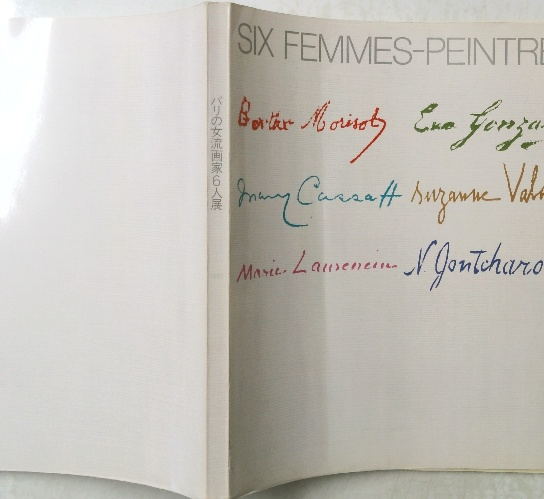 パリの女流画家6人展
SIX FEMMES-PEINTRE
Berthe Morisot Eva Gonza
Mary Cassatt Suzanne Vala
Marie Laurencin N. Gontcharo